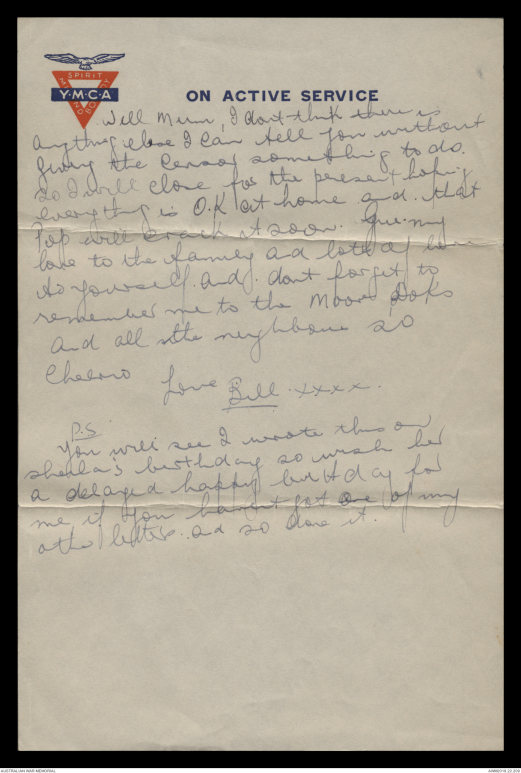 SPIRIT
MIND
BODY
Y·M·C·A
ON ACTIVE SERVICE
Well Mum, I dont think there is
anything else I can tell you without
giving the Censor something to do.
So I will close for the present hoping
everything is O.K at home and that
Pop will crack it soon. Give my
love to the family and lots of love
to yourself and dont forget to
remember me to the Moores
and all the neighbours so
Cheerio Love Bill xxxx.
P.S
You will see I wrote this on
sheila's birthday so wish her
a delayed happy birthday for
me if you havent got one of my
other letters and so done it.
AUSTRALIAN WAR MEMORIAL